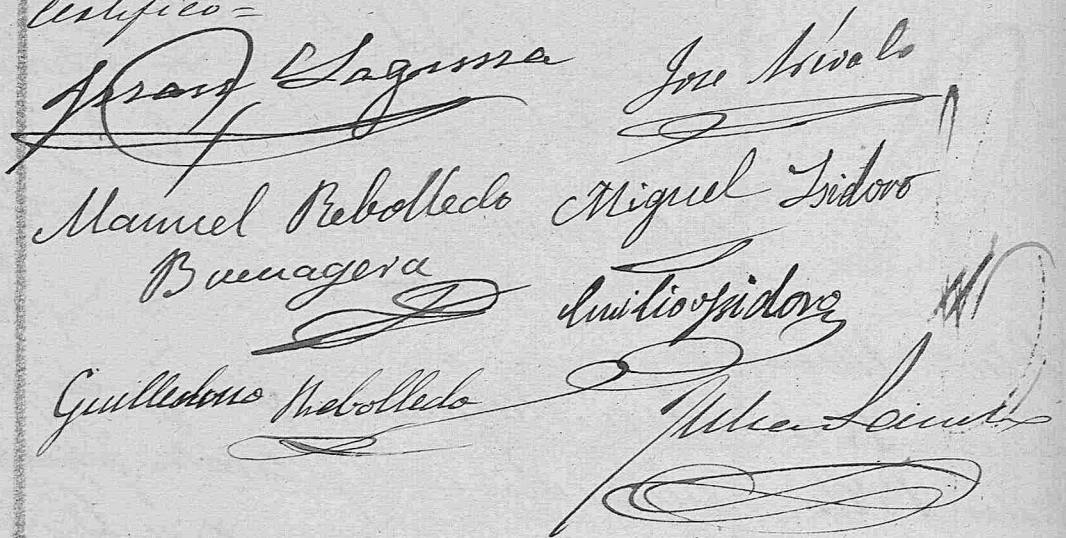 Certifico=
Juan Laguna
José Arévalo
Manuel Rebolledo
Buenagera
Miguel Isidoro
Emilio Isidoro
Guillermo Rebolledo
Julian